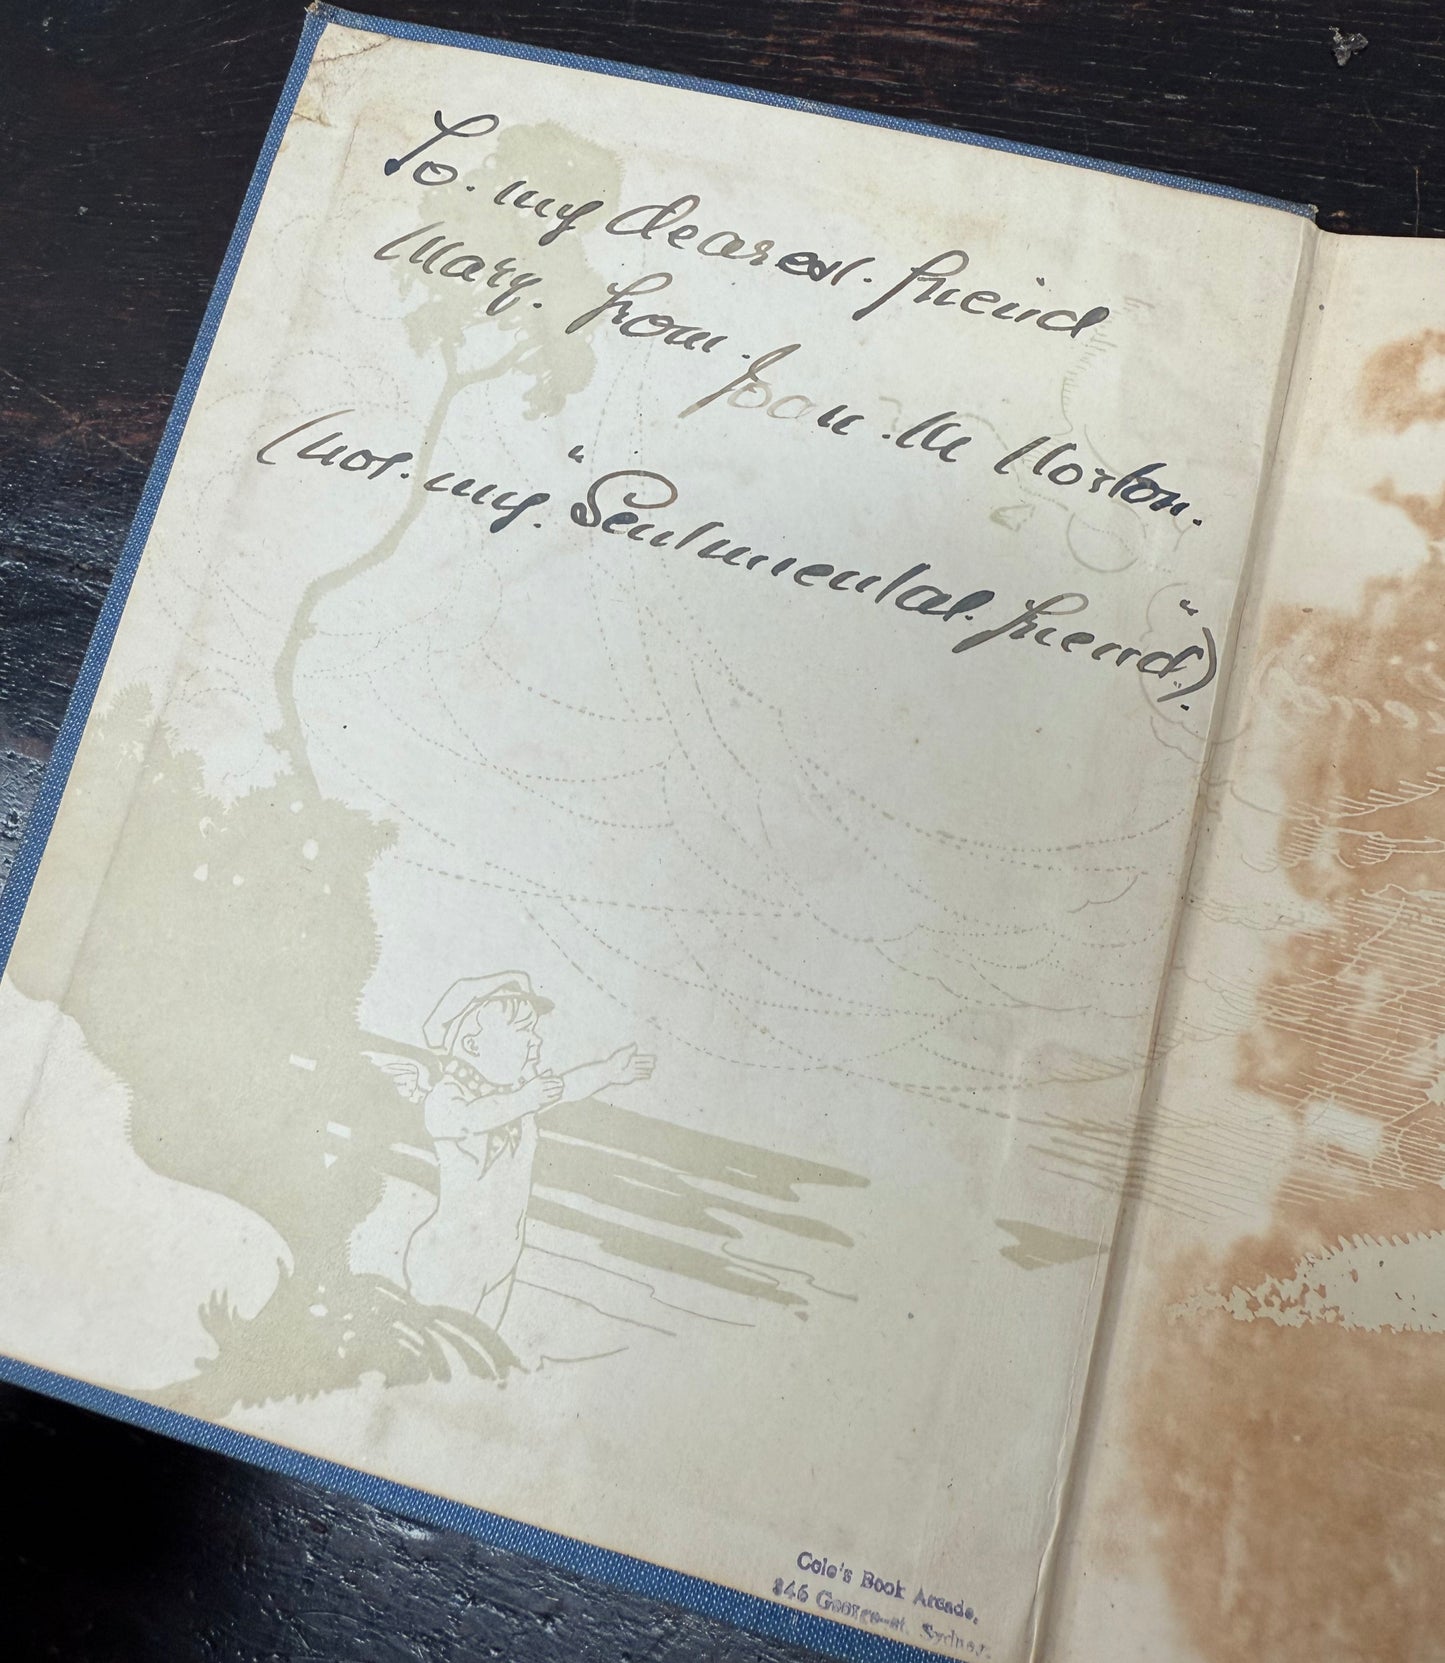 To. my dearest. friend
Mary. from. Joan. M Norton.
(not. my. "Sentimental. friend").
Cole's Book Arcade,
346 George-st. Sydney.